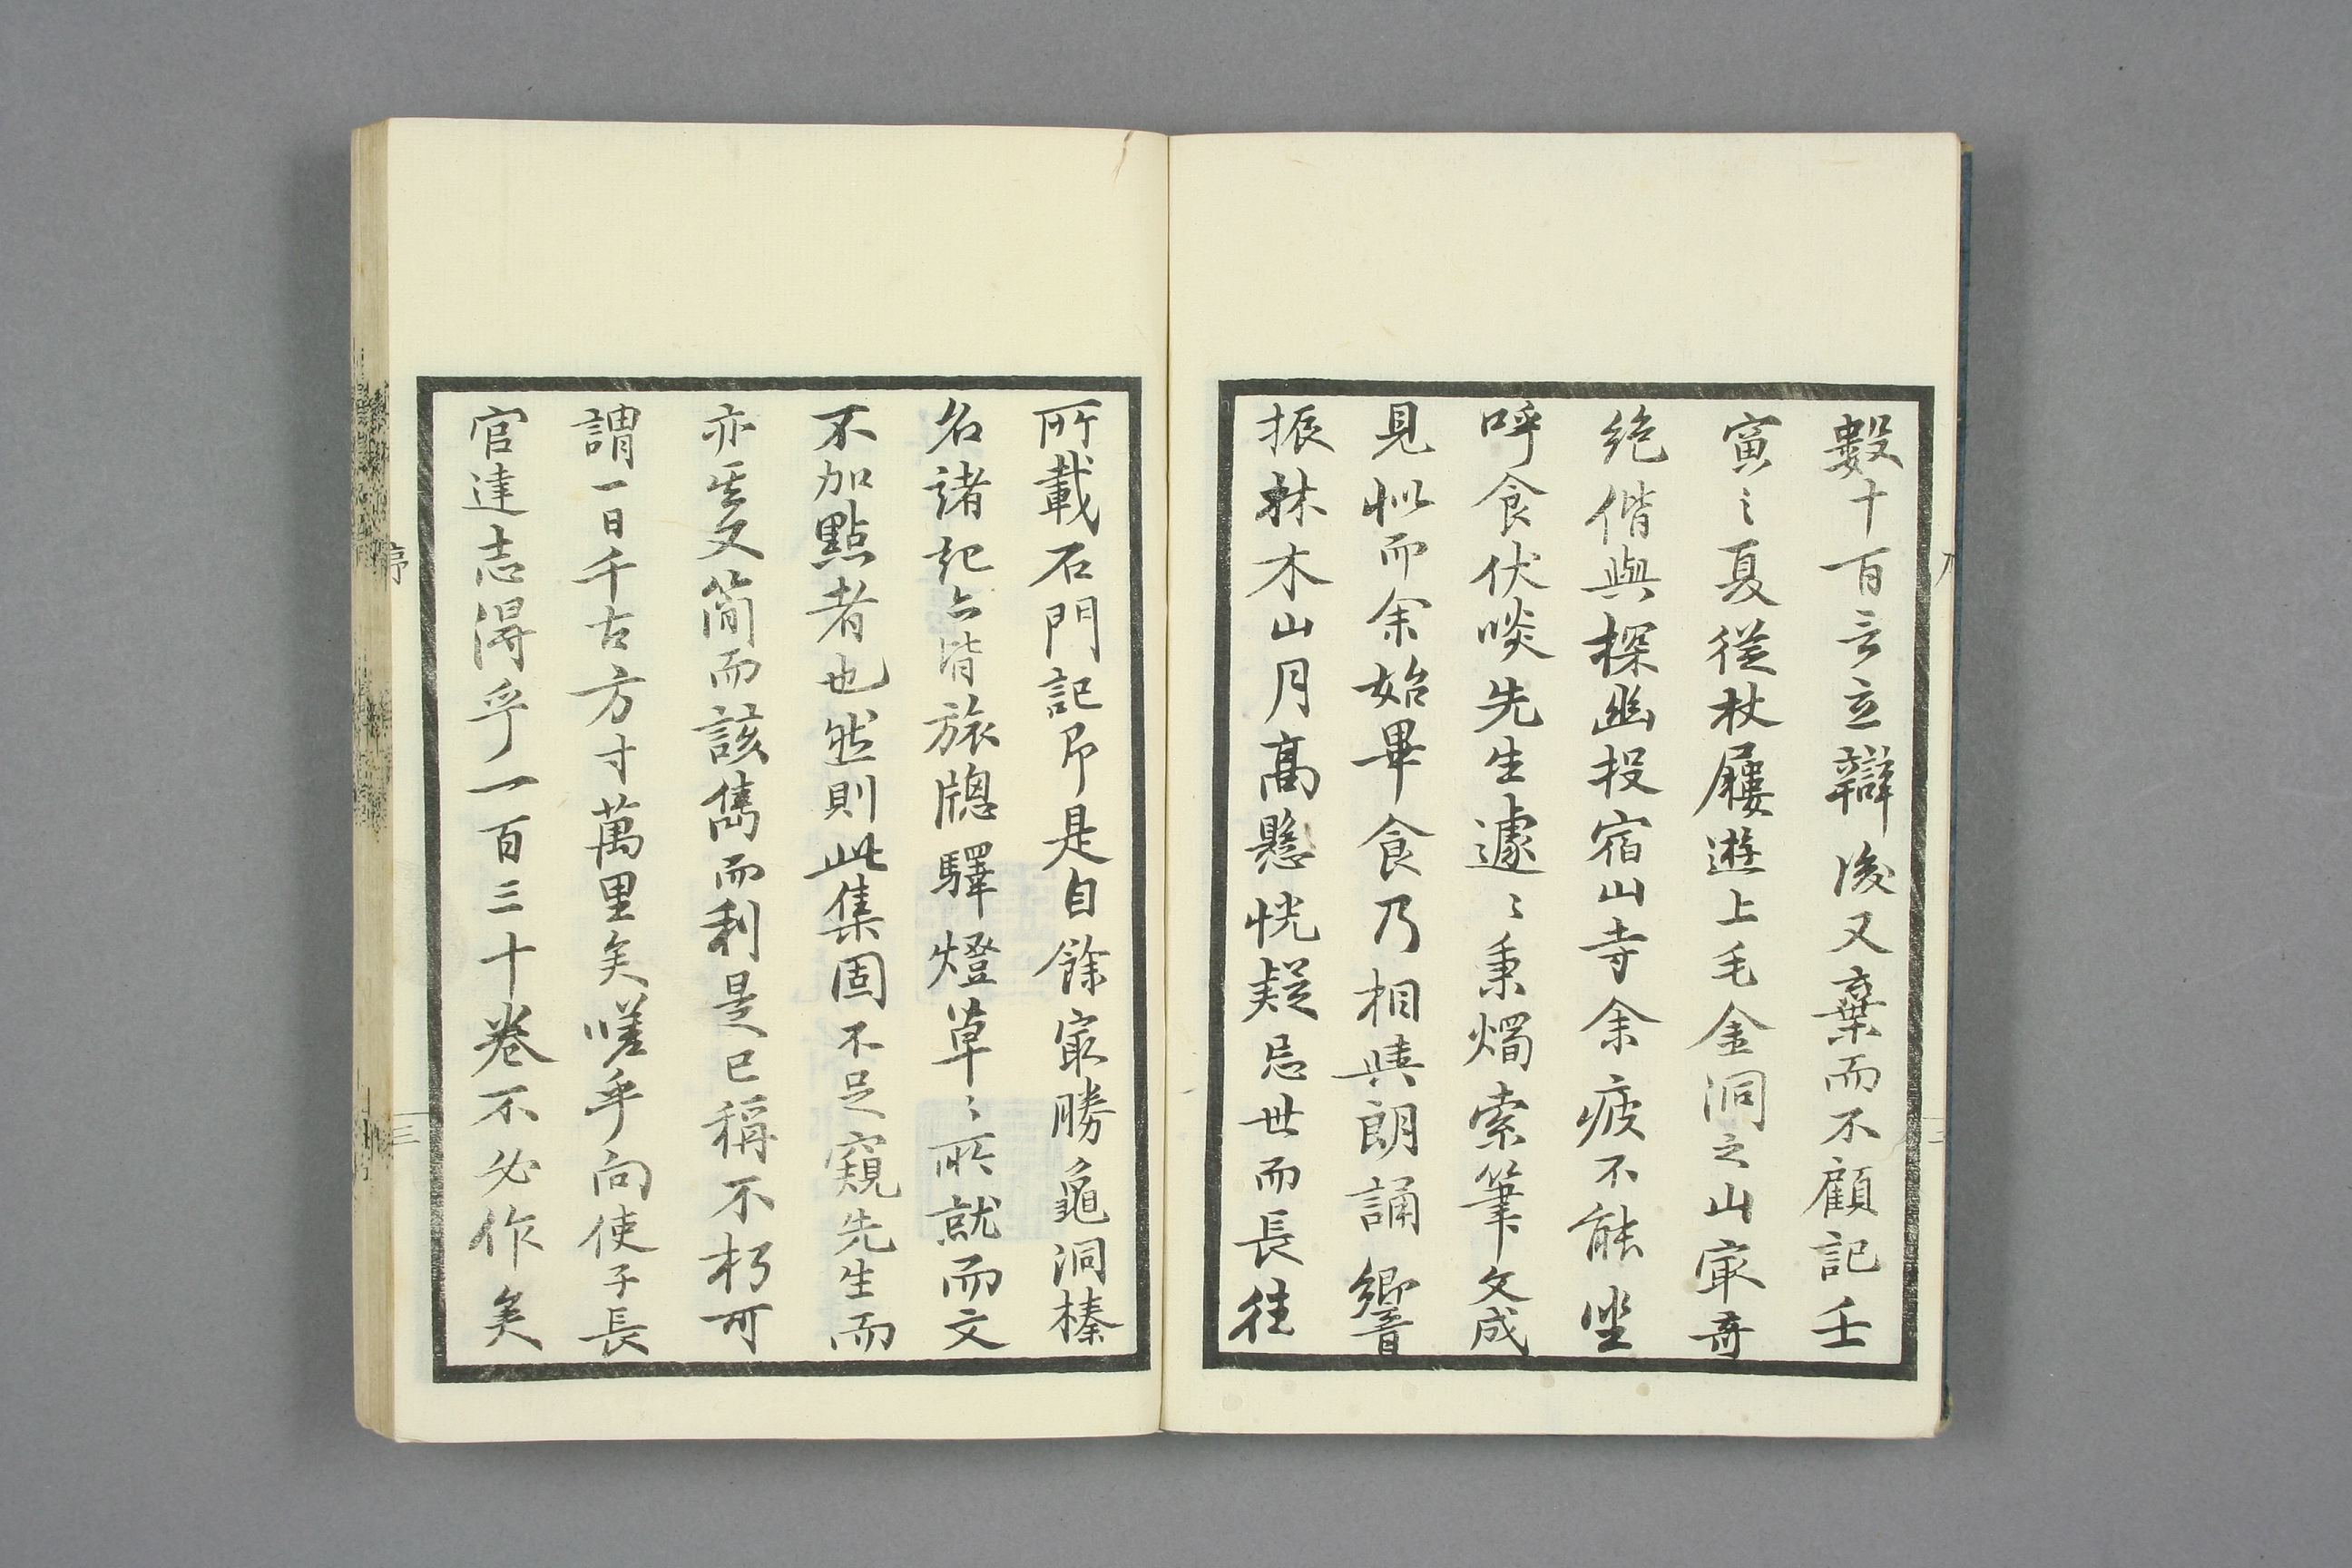 數十百言立辯後又棄而不顧記壬
寅之夏從杖屨遊上毛金洞之山㝡奇
絶偕與探幽投宿山寺余疲不能坐
呼食伏啖先生遽〻秉燭索筆文成
見似而余始畢食乃相與朗誦響
振林木山月高懸恍疑忘世而長往
所載石門記即是自餘㝡勝龜洞榛
名諸記亦皆旅牕驛燈草〻所就而文
不加點者也然則此集固不足窺先生而
亦足又簡而該雋而利是已稱不朽可
謂一日千古方寸萬里矣嗟乎向使子長
官達志得乎一百三十卷不必作矣
序
三